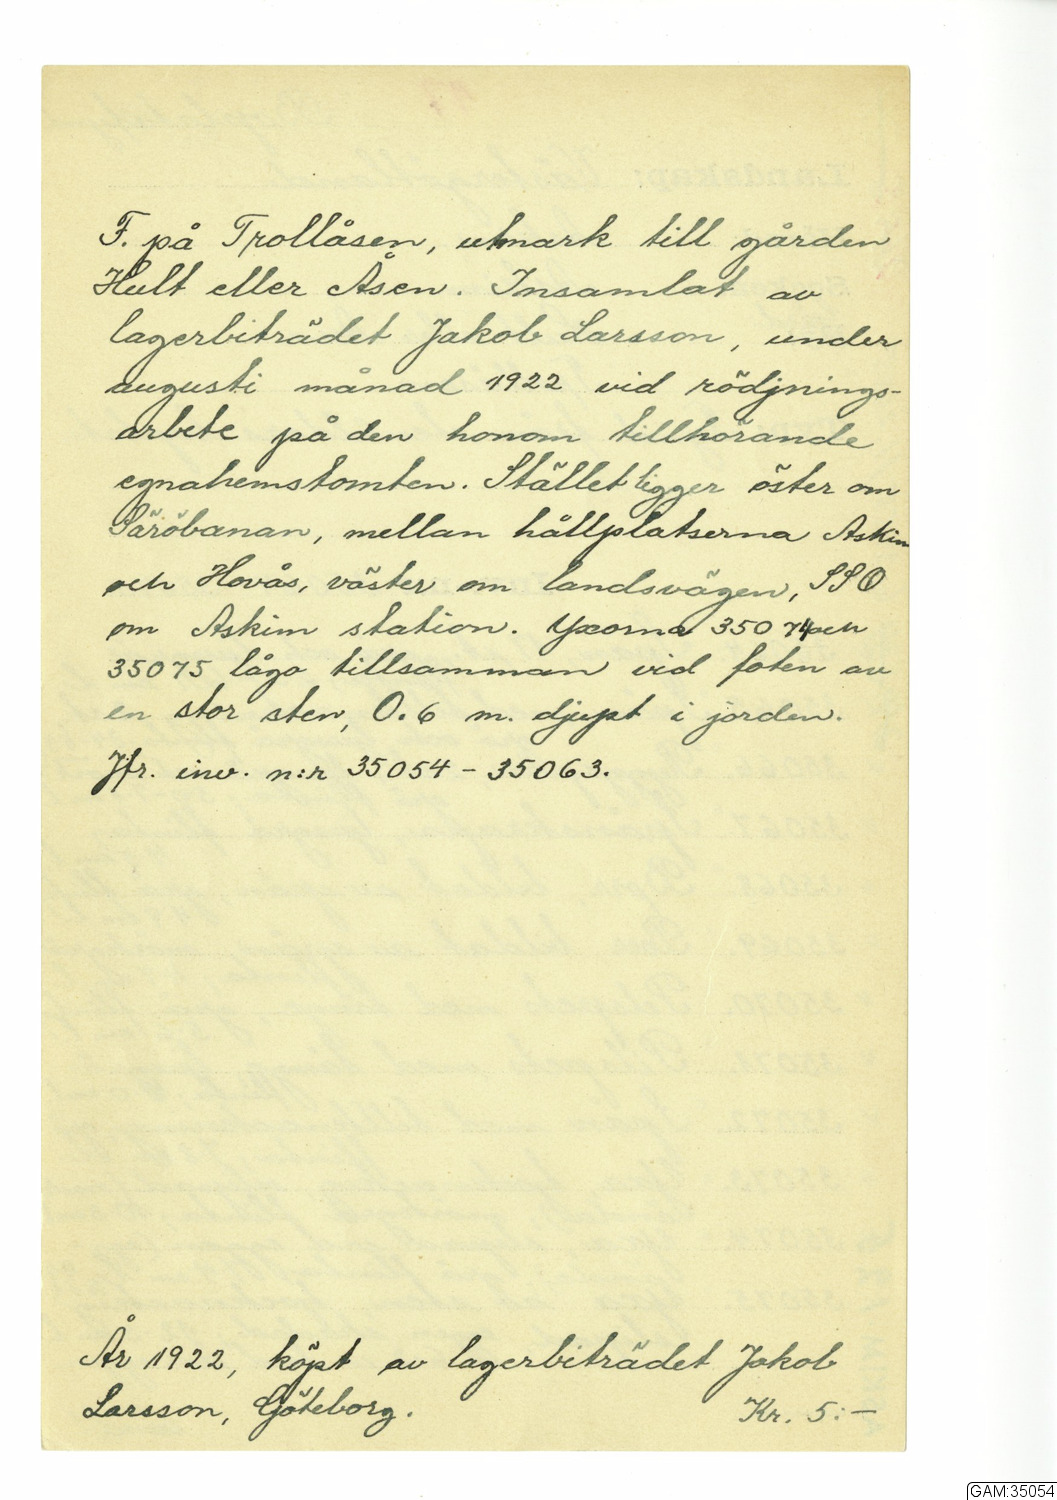 F. på Trollåsen, utmark till gården
Hult eller Åsen. Insamlat av
lagerbiträdet Jakob Larsson, under
augusti månad 1922 vid rödjnings-
arbete på den honom tillhörande
egnahemstomten. Stället ligger öster om
Säröbanan, mellan hållplatserna Askim
och Hovås, väster om landsvägen, SSO
om Askim station. Yxorna 35074 och
35075 lågo tillsamman vid foten av
en stor sten, 0.6 m. djupt i jorden.
Jfr. inv. n:r 35054 - 35063.
År 1922, köpt av lagerbiträdet Jakob
Larsson, Göteborg. Kr. 5:-
GAM:35054